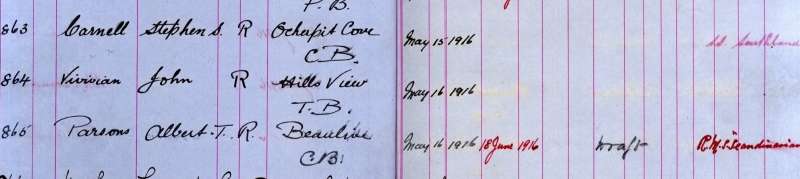 P. B.
863 Carnell Stephen S. R Ochrepit Cove May 15 1916 SS. Southland
C.B.
864 Vivivian John R Hills View May 16 1916
T.B.
865 Parsons Albert. T. R. May 16 1916 18 June 1916 Draft R.M.S. Scandinavian
C.B.